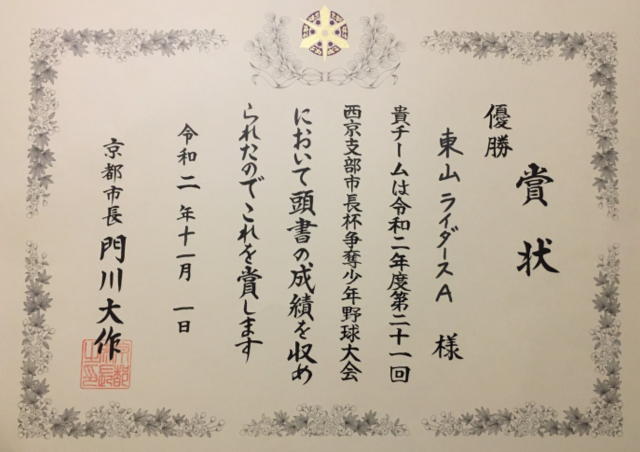 賞状
優勝
東山ライダースA 様
貴チームは令和二年度第二十一回
西京支部市長杯争奪少年野球大会
において頭書の成績を収め
られたのでこれを賞します
令和二年十一月一日
京都市長 門川大作